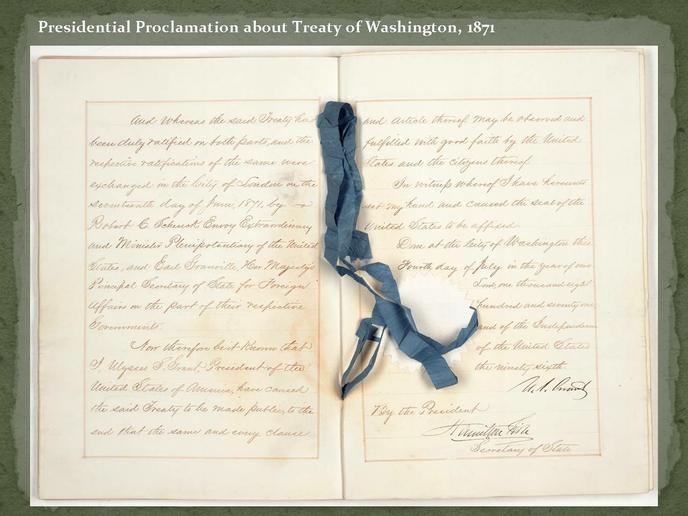 Presidential Proclamation about Treaty of Washington, 1871
And Whereas the said Treaty has
been duly ratified on both parts, and the
respective ratifications of the same were
exchanged in the City of London on the
seventeenth day of June, 1871, by
Robert C. Schenck, Envoy Extraordinary
and Minister Plenipotentiary of the United
States, and Earl Granville, Her Majesty's
Principal Secretary of State for Foreign
Affairs on the part of their respective
Governments.
Now therefore be it known that
I Ulysses S. Grant President of the
United States of America, have caused
the said Treaty to be made public, to the
end that the same and every clause
and article thereof may be observed and
fulfilled with good faith by the United
States and the citizens thereof.
In witness whereof I have hereunto
set my hand and caused the seal of the
United States to be affixed.
Done at the City of Washington this
Fourth day of July in the year of our
Lord, one thousand eight
hundred and seventy one
and of the Independence
of the United States
the ninety sixth.
U. S. Grant
By the President
Hamilton Fish
Secretary of State